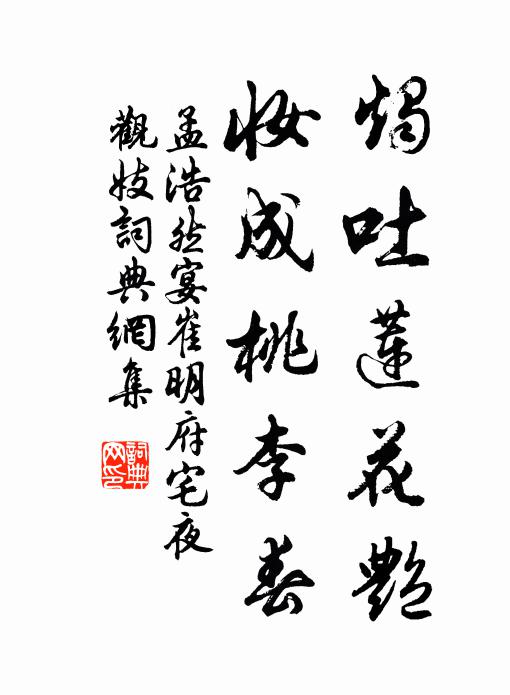 燭吐蓮花艷
妝成桃李春
孟浩然宴崔明府宅夜
觀妓詞典網集
詞典
網印